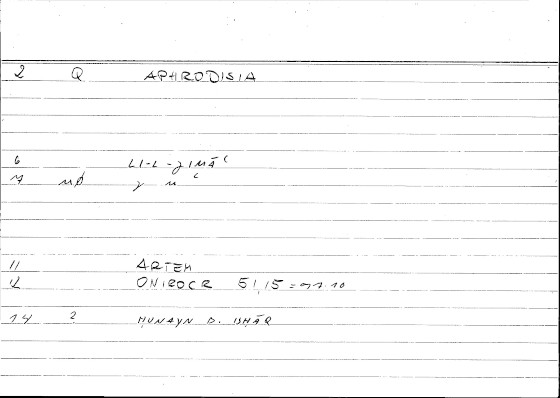 2 Q APHRODISIA
6 LI-L-ǧIMĀʿ
7 ǧ
11 ARTEM
12 ONIROCR 51,15 =
14 2 ḤUNAYN B. ISḤĀQ